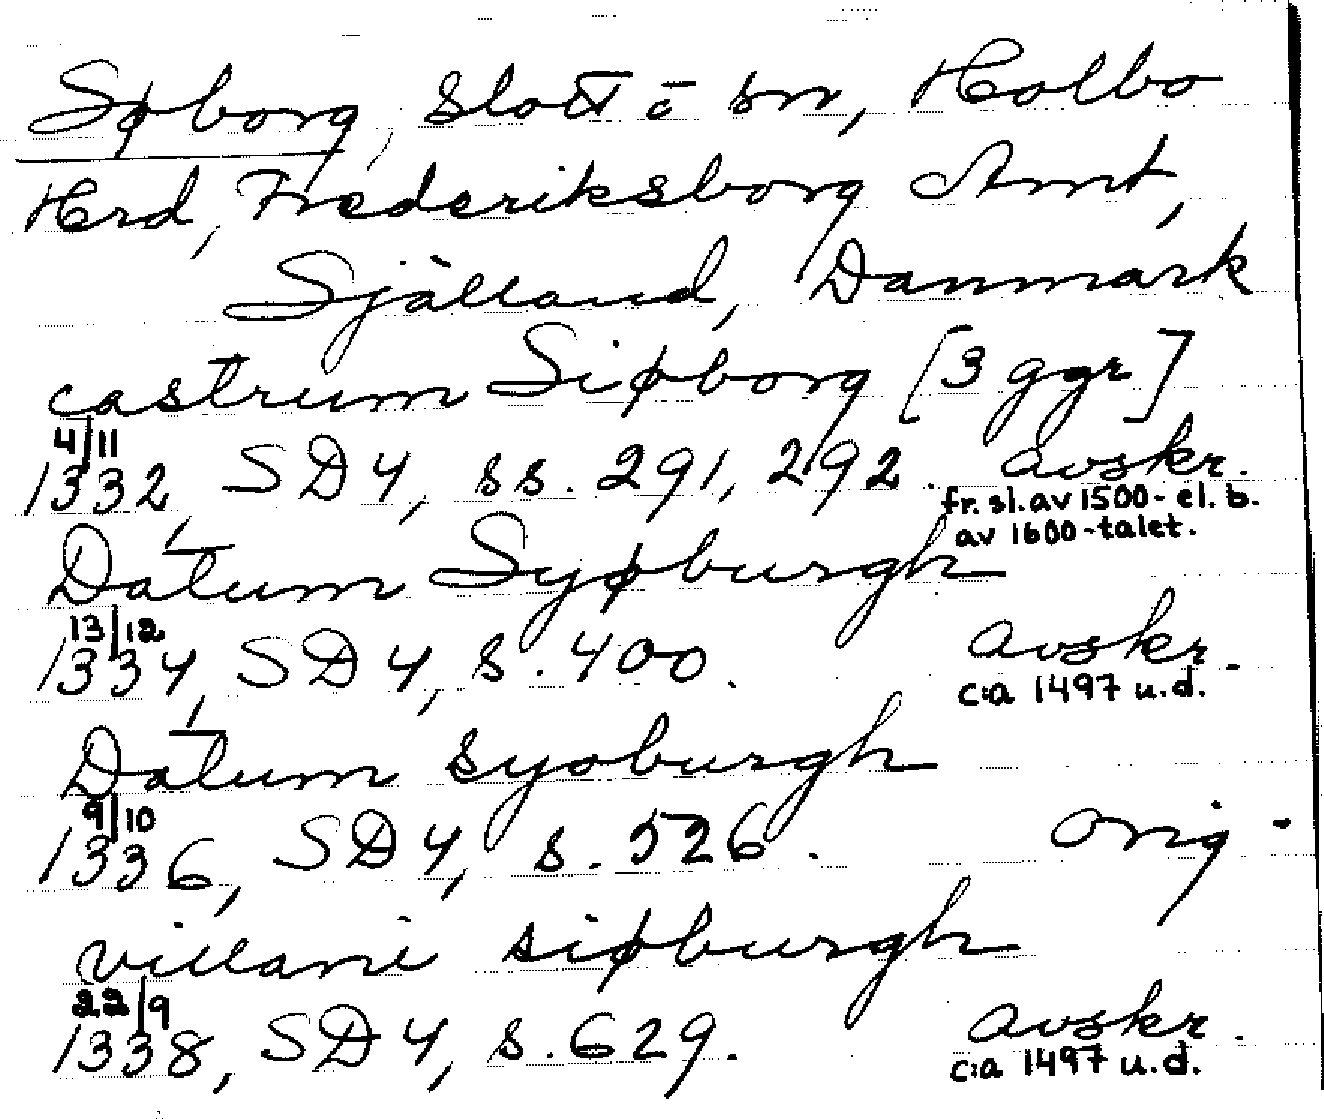 Søborg, slott o sn, Holbo
Hrd, Frederiksborg Amt,
Själland, Danmark
castrum Siøborg [3 ggr]
4/11
1332, SD 4, ss. 291, 292. avskr.
fr. sl. av 1500- el. b.
av 1600-talet.
Datum Syøburgh
13/12
1334, SD 4, s. 400. avskr.
c:a 1497 u.d.
Datum syoburgh
9/10
1336, SD 4, s. 526. orig.
villani siøburgh
22/9
1338, SD 4, s. 629. avskr.
c:a 1497 u.d.